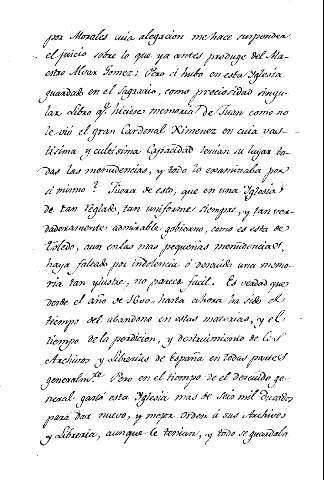 por Morales cuia alegacion me hace suspender
el juicio sobre lo que ya antes produge del Ma-
estro Alvar Gomez; Pero si hubo en esta Yglesia
guardado en el Sagrario, como preciosidad singu-
lar Libro q.e hiciese memoria de Juan como no
le vió el gran Cardenal Ximenez en cuia vas-
tisima y cultisima Capacidad tenian su lugar to-
das las menudencias, y todo lo examinaba por
si mismo? Fuera de esto, que en una Yglesia
de tan reglado, tan uniforme siempre, y tan ver-
daderamente admirable gobierno, como es esta de
Toledo, aun en las mas pequeñas menudencias,
haya faltado por indolencia ó descuido una memo-
ria tan ylustre, no parece facil. Es verdad que
desde el año de 1600. hasta ahora ha sido el
tiempo del abandono en estas materias, y el
tiempo de la perdicion, y destruimiento de los
Archivos y Librerias de España en todas partes
generalm.te Pero en el tiempo de el descuido ge-
neral gastó esta Yglesia mas de seis mil ducados
para dar nuevo, y mejor orden á sus Archivos
y Libreria, aunque le tenian, y todo se guardaba